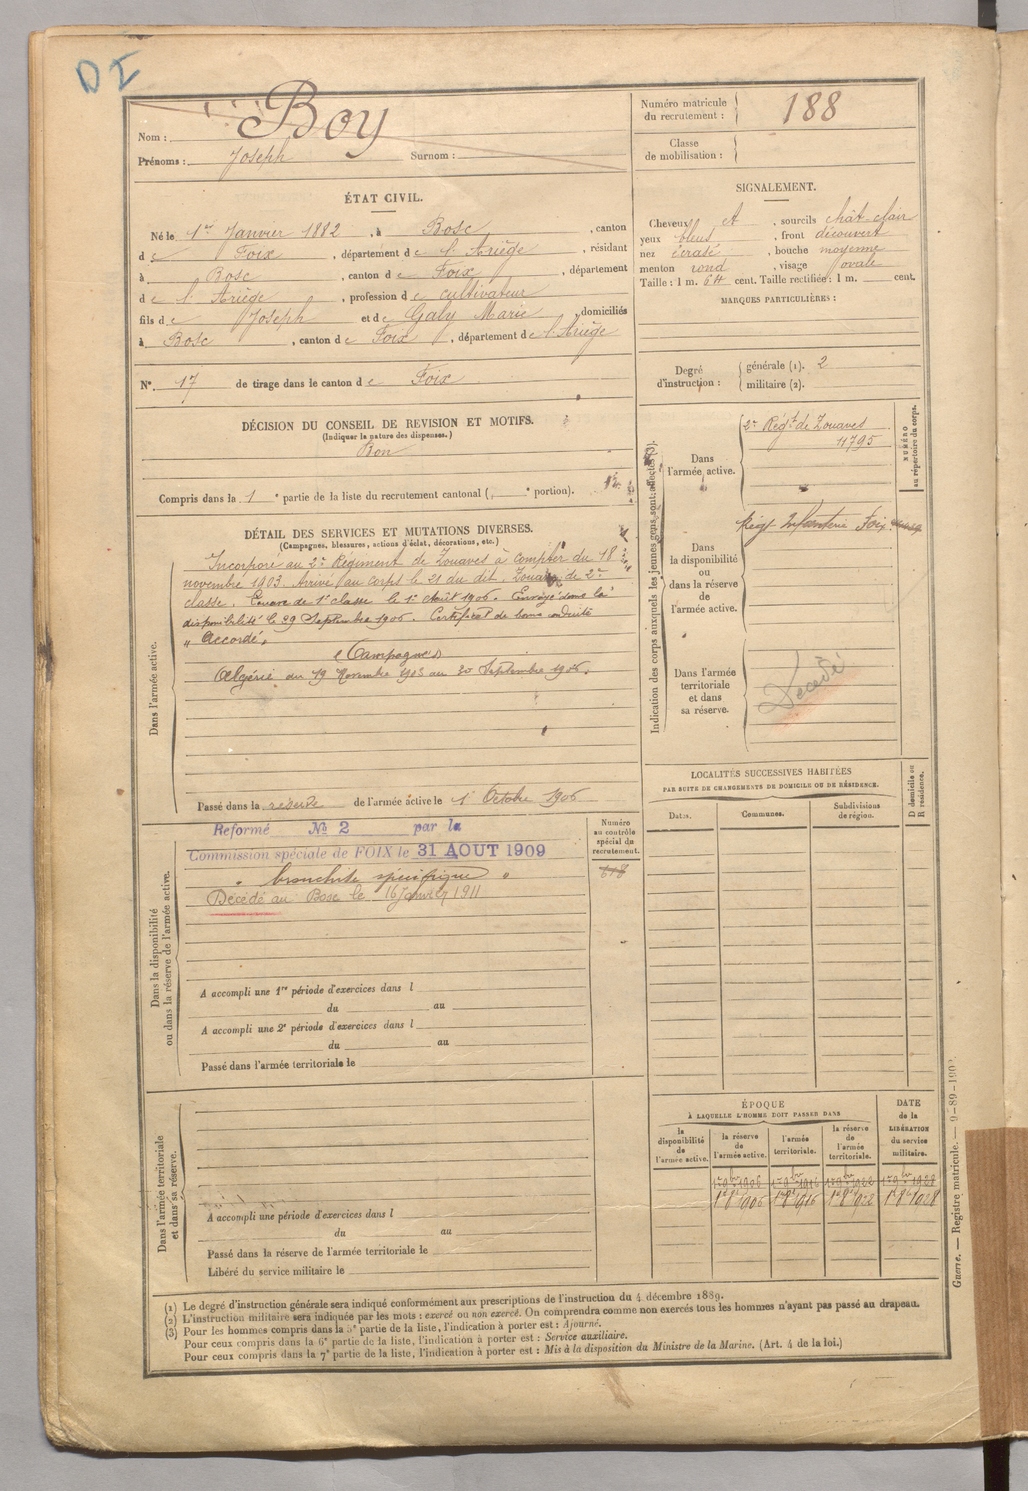 D I
Nom : Boy
Prénoms : Joseph Surnom :
Numéro matricule du recrutement : 188
Classe de mobilisation :
ÉTAT CIVIL.
Né le 1er Janvier 1882, à Bosc, canton
de Foix, département de l'Ariège, résidant
à Bosc, canton de Foix, département
de l'Ariège, profession de cultivateur
fils de Joseph et de Galy Marie, domiciliés
à Bosc, canton de Foix, département de l'Ariège
N° 17 de tirage dans le canton de Foix
SIGNALEMENT.
Cheveux et, sourcils chât-clair
yeux bleus, front découvert
nez écrasé, bouche moyenne
menton rond, visage ovale
Taille : 1 m. 64 cent. Taille rectifiée : 1 m. cent.
MARQUES PARTICULIÈRES :
Degré d'instruction : générale (1). 2
militaire (2).
DÉCISION DU CONSEIL DE REVISION ET MOTIFS.
(Indiquer la nature des dispenses.)
Bon
Compris dans la 1e partie de la liste du recrutement cantonal ( e portion).
DÉTAIL DES SERVICES ET MUTATIONS DIVERSES.
(Campagnes, blessures, actions d'éclat, décorations, etc.)
Dans l'armée active.
Incorporé au 2e Régiment de Zouaves à compter du 18
novembre 1903. Arrivé au corps le 21 du dit. Zouave de 2e
classe. Zouave de 1e classe le 1er Août 1906. Envoyé dans la
disponibilité le 29 Septembre 1906. Certificat de bonne conduite
"Accordé"
Campagnes
Algérie du 19 Novembre 1903 au 30 Septembre 1906.
Passé dans la réserve de l'armée active le 1 Octobre 1906
Indication des corps auxquels les jeunes gens sont affectés (3).
NUMÉRO au répertoire du corps.
Dans l'armée active.
2e Régt de Zouaves
11795
Dans la disponibilité ou dans la réserve de l'armée active.
Régt Infanterie Foix
Dans l'armée territoriale et dans sa réserve.
Décédé
Dans la disponibilité ou dans la réserve de l'armée active.
Réformé N° 2 par la
Commission spéciale de FOIX le 31 AOUT 1909
" bronchite spécifique "
Décédé au Bosc le 16 Janvier 1911
Numéro au contrôle spécial du recrutement.
A accompli une 1re période d'exercices dans l
du au
A accompli une 2e période d'exercices dans l
du au
Passé dans l'armée territoriale le
LOCALITÉS SUCCESSIVES HABITÉES
PAR SUITE DE CHANGEMENTS DE DOMICILE OU DE RÉSIDENCE.
Dates. Communes. Subdivisions de région. D domicile ou R résidence.
Dans l'armée territoriale et dans sa réserve.
A accompli une période d'exercices dans l
du au
Passé dans la réserve de l'armée territoriale le
Libéré du service militaire le
ÉPOQUE
À LAQUELLE L'HOMME DOIT PASSER DANS
DATE de la LIBÉRATION du service militaire.
la disponibilité de l'armée active. la réserve de l'armée active. l'armée territoriale. la réserve de l'armée territoriale.
1er 9bre 1906 1er 9bre 1916 1er 9bre 1922 1er 9bre 1928
1er 8bre 1906 1er 8bre 1916 1er 8bre 1922 1er 8bre 1928
(1) Le degré d'instruction générale sera indiqué conformément aux prescriptions de l'instruction du 4 décembre 1889.
(2) L'instruction militaire sera indiquée par les mots : exercé ou non exercé. On comprendra comme non exercés tous les hommes n'ayant pas passé au drapeau.
(3) Pour les hommes compris dans la 5e partie de la liste, l'indication à porter est : Ajourné.
Pour ceux compris dans la 6e partie de la liste, l'indication à porter est : Service auxiliaire.
Pour ceux compris dans la 7e partie de la liste, l'indication à porter est : Mis à la disposition du Ministre de la Marine. (Art. 4 de la loi.)
Guerre. — Registre matricule. —